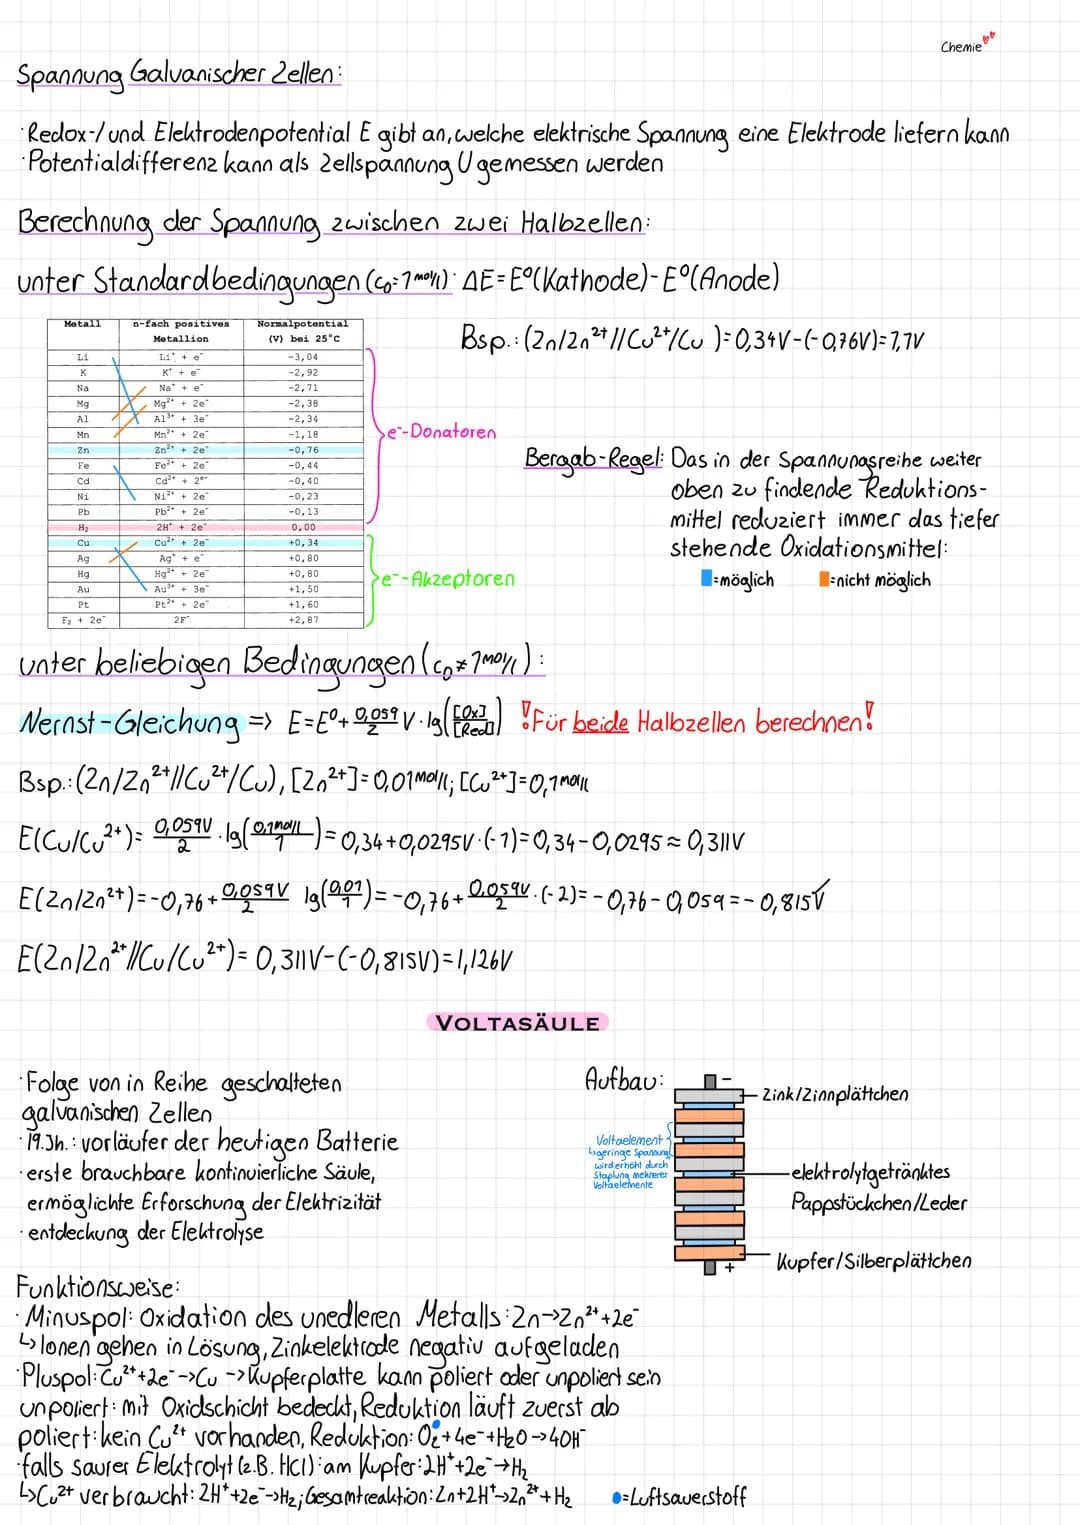 Chemie
Spannung Galvanischer Zellen:
· Redox-/und Elektrodenpotential E gibt an, welche elektrische Spannung eine Elektrode liefern kann
· Potentialdifferenz kann als Zellspannung U gemessen werden
Berechnung der Spannung zwischen zwei Halbzellen:
unter Standardbedingungen (c₀=1mol/l): ΔE=E⁰(Kathode)-E⁰(Anode)
Bsp.: (Zn/Zn²⁺//Cu²⁺/Cu)=0,34V-(-0,76V)=1,1V
Metall n-fach positives Metallion Normalpotential (V) bei 25°C
Li Li⁺ + e⁻ -3,04
K K⁺ + e⁻ -2,92
Na Na⁺ + e⁻ -2,71
Mg Mg²⁺ + 2e⁻ -2,38
Al Al³⁺ + 3e⁻ -2,34
Mn Mn²⁺ + 2e⁻ -1,18
Zn Zn²⁺ + 2e⁻ -0,76
Fe Fe²⁺ + 2e⁻ -0,44
Cd Cd²⁺ + 2e⁻ -0,40
Ni Ni²⁺ + 2e⁻ -0,23
Pb Pb²⁺ + 2e⁻ -0,13
H₂ 2H⁺ + 2e⁻ 0,00
Cu Cu²⁺ + 2e⁻ +0,34
Ag Ag⁺ + e⁻ +0,80
Hg Hg²⁺ + 2e⁻ +0,80
Au Au³⁺ + 3e⁻ +1,50
Pt Pt²⁺ + 2e⁻ +1,60
F₂ + 2e⁻ 2F⁻ +2,87
e⁻-Donatoren
e⁻-Akzeptoren
Bergab-Regel: Das in der Spannungsreihe weiter
oben zu findende Reduktions-
mittel reduziert immer das tiefer
stehende Oxidationsmittel:
=möglich =nicht möglich
unter beliebigen Bedingungen (c₀≠1mol/l):
Nernst-Gleichung => E=E⁰+ 0,059/z V·lg([Ox]/[Red]) !Für beide Halbzellen berechnen!
Bsp.: (Zn/Zn²⁺//Cu²⁺/Cu), [Zn²⁺]=0,01mol/l; [Cu²⁺]=0,1mol/l
E(Cu/Cu²⁺)= 0,059V/2 ·lg(0,1mol/l/1)=0,34+0,0295V·(-1)=0,34-0,0295≈0,311V
E(Zn/Zn²⁺)=-0,76+ 0,059V/2 lg(0,01/1)=-0,76+ 0,059V/2 ·(-2)=-0,76-0,059=-0,815V
E(Zn/Zn²⁺//Cu/Cu²⁺)= 0,311V-(-0,815V)=1,126V
VOLTASÄULE
· Folge von in Reihe geschalteten
galvanischen Zellen
· 19.Jh.: vorläufer der heutigen Batterie
· erste brauchbare kontinuierliche Säule,
ermöglichte Erforschung der Elektrizität
· entdeckung der Elektrolyse
Aufbau:
-
Zink/Zinnplättchen
Voltaelement
↳geringe Spannung
wird erhöht durch
Staplung mehrerer
Voltaelemente
elektrolytgetränktes
Pappstöckchen/Leder
Kupfer/Silberplättchen
+
Funktionsweise:
· Minuspol: Oxidation des unedleren Metalls: Zn->Zn²⁺+2e⁻
↳Ionen gehen in Lösung, Zinkelektrode negativ aufgeladen
· Pluspol: Cu²⁺+2e⁻->Cu -> Kupferplatte kann poliert oder unpoliert sein
unpoliert: mit Oxidschicht bedeckt, Reduktion läuft zuerst ab
poliert: kein Cu²⁺ vorhanden, Reduktion: O₂+4e⁻+H₂O->4OH⁻
· falls saurer Elektrolyt (z.B. HCl): am Kupfer: 2H⁺+2e⁻->H₂
↳Cu²⁺ verbraucht: 2H⁺+2e⁻->H₂; Gesamtreaktion: Zn+2H⁺->Zn²⁺+H₂
=Luftsauerstoff